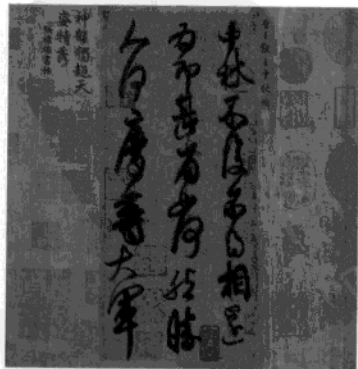 晉王獻之中秋帖
中秋不復不得相還
為即甚省如何然勝
人何慶等大軍
神韻獨超天
姿特秀